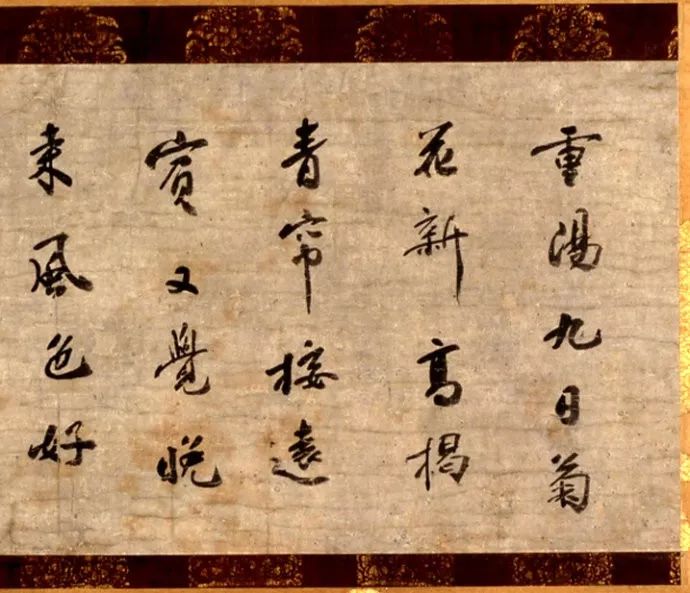 重陽九日菊
花新高揭
青帘接遠
賓又覺晚
来風色好